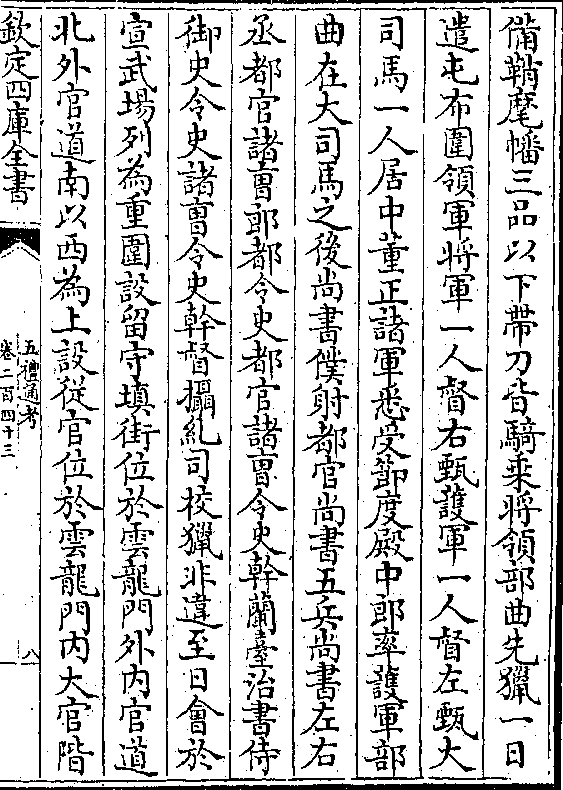 備鞘麾幡三品以下帶刀皆騎乘將領部曲先獵一日
遣屯布圍領軍將軍一人督右甄護軍一人督左甄大
司馬一人居中董正諸軍悉受節度殿中郎率護軍部
曲在大司馬之後尚書僕射都官尚書五兵尚書左右
丞都官諸曹郎都令史都官諸曹令史幹蘭臺治書侍
御史令史諸曹令史幹督攝糺司校獵非違至日會於
宣武場列為重圍設留守填街位於雲龍門外内官道
北外官道南以西為上設從官位於雲龍門内大官階
欽定四庫全書
五禮通考
卷二百四十三
八